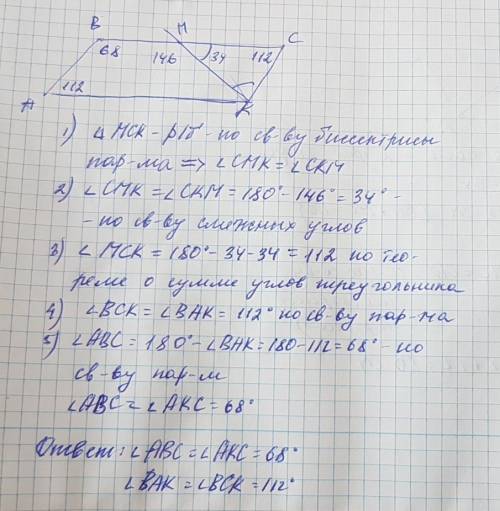 B M C
68 146 34 112
A 112 K
1) △ МСК - р/б - по св-ву биссектрисы
пар-ма => ∠CMK = ∠CKM
2) ∠CMK = ∠CKM = 180° - 146° = 34° -
- по св-ву смежных углов
3) ∠ MCK = 180° - 34 - 34 = 112 по тео-
реме о сумме углов треугольника
4) ∠BCK = ∠BAK = 112° по св-ву пар-ма
5) ∠ABC = 180° - ∠BAK = 180 - 112 = 68° - по
св-ву пар-м
∠ABC = ∠AKC = 68°
Ответ: ∠ABC = ∠AKC = 68°
∠BAK = ∠BCK = 112°